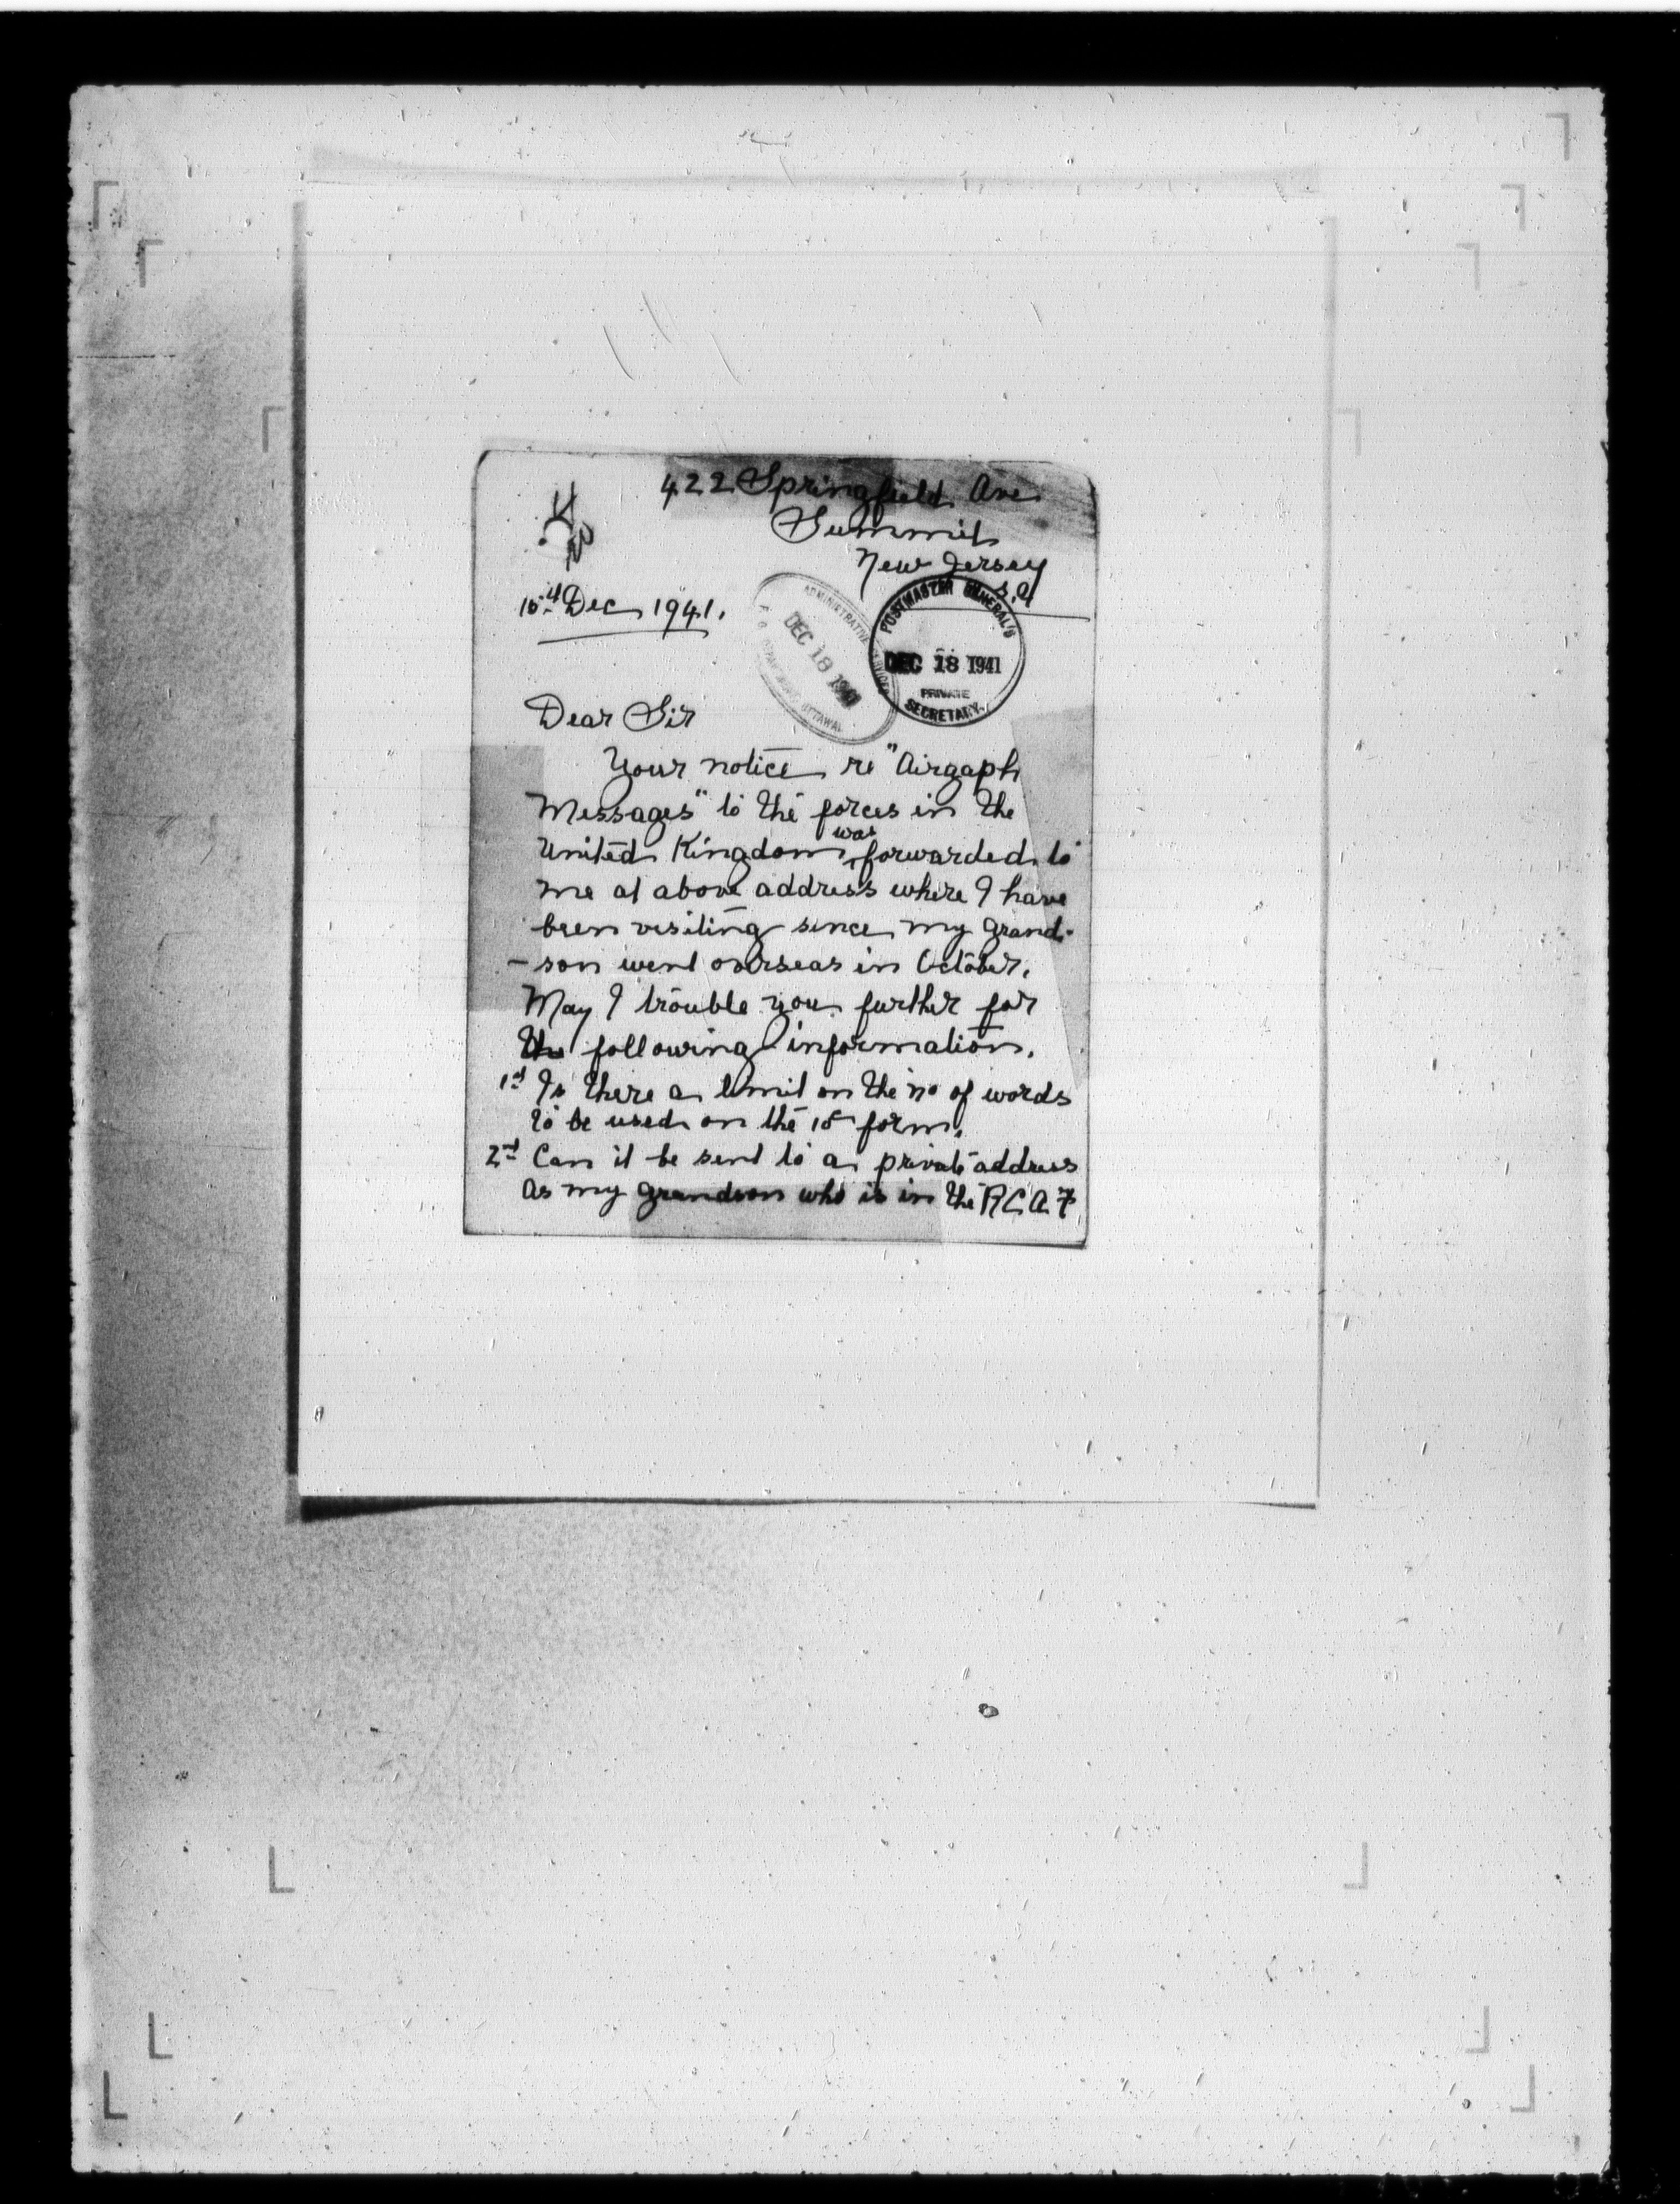 422 Springfield Ave
Summit
New Jersey
15th Dec 1941.
ADMINISTRATIVE SERVICES
DEC 18 1941
OTTAWA
POSTMASTER GENERAL'S
DEC 18 1941
PRIVATE
SECRETARY.
Dear Sir
Your notice re "Airgaph
Messages" to the forces in the
was
United Kingdom forwarded to
me at above address where I have
been visiting since my grand-
-son went overseas in October.
May I trouble you further for
the following information.
1st Is there a limit on the no of words
to be used on the form.
2nd Can it be sent to a private address
as my grandson who is in the R.C.A.F